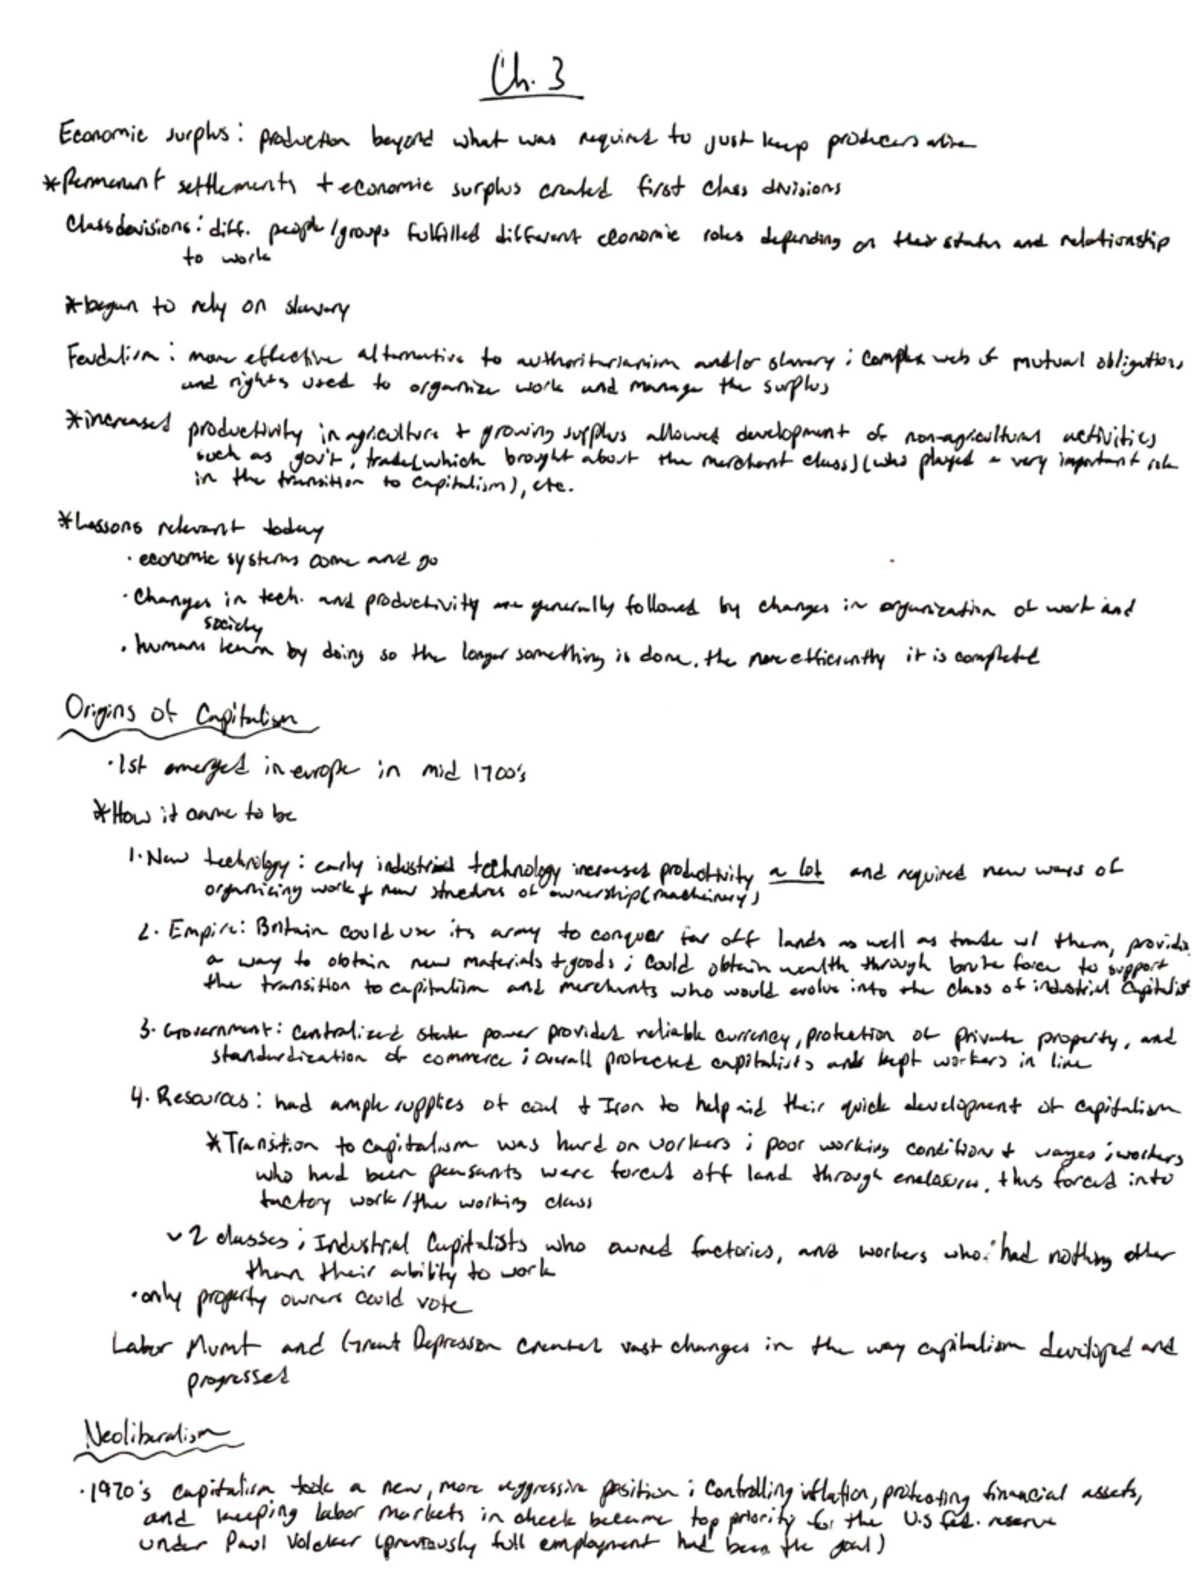 Ch. 3
Economic surplus: production beyond what was required to just keep producers alive
*Permanent settlements + economic surplus created first class divisions
Class devisions: diff. people/groups fulfilled different economic roles depending on their status and relationship
to work
*began to rely on slavery
Feudalism: more effective alternative to authoritarianism and/or slavery; complex web of mutual obligations
and rights used to organize work and manage the surplus
*increased productivity in agriculture + growing surplus allowed development of non-agricultural activities
such as gov't, trade (which brought about the merchant class) (who played a very important role
in the transition to capitalism), etc.
*Lessons relevant today
· economic systems come and go
· Changes in tech. and productivity are generally followed by changes in organization of work and
society
· humans learn by doing so the longer something is done, the more efficiently it is completed
Origins of Capitalism
· 1st emerged in europe in mid 1700's
*How it came to be
1. New technology: early industrial technology increased productivity a lot and required new ways of
organizing work + new structures of ownership (machinery)
2. Empire: Britain could use its army to conquer far off lands as well as trade w/ them, providi
a way to obtain new materials + goods; could obtain wealth through brute force to support
the transition to capitalism and merchants who would evolve into the class of industrial Capitalist
3. Government: centralized state power provided reliable currency, protection of private property, and
standardization of commerce; overall protected capitalists and kept workers in line
4. Resources: had ample supplies of coal + Iron to help aid their quick development of capitalism
*Transition to capitalism was hard on workers; poor working condition + wages; workers
who had been peasants were forced off land through enclosure, thus forced into
factory work/the working class
2 classes; Industrial Capitalists who owned factories, and workers who had nothing other
than their ability to work
· only property owners could vote
Labor Mvmt and Great Depression created vast changes in the way capitalism developed and
progressed
Neoliberalism
· 1970's capitalism took a new, more aggressive position; Controlling inflation, protecting financial assets,
and keeping labor markets in check became top priority for the U.S fed. reserve
under Paul Volcker (previously full employment had been the goal)